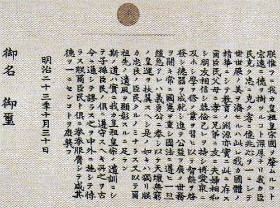 朕惟フニ我カ皇祖皇宗國ヲ肇ムルコト
宏遠ニ德ヲ樹ツルコト深厚ナリ我カ臣
民克ク忠ニ克ク孝ニ億兆心ヲ一ニシテ
世々厥ノ美ヲ濟セルハ此レ我カ國體ノ
精華ニシテ教育ノ淵源亦實ニ此ニ存ス
爾臣民父母ニ孝ニ兄弟ニ友ニ夫婦相和
シ朋友相信シ恭儉己レヲ持シ博愛衆ニ
及ホシ學ヲ修メ業ヲ習ヒ以テ智能ヲ啓
發シ德器ヲ成就シ進テ公益ヲ廣メ世務
ヲ開キ常ニ國憲ヲ重シ國法ニ遵ヒ一旦
緩急アレハ義勇公ニ奉シ以テ天壤無窮
ノ皇運ヲ扶翼スヘシ是ノ如キハ獨リ朕
カ忠良ノ臣民タルノミナラス又以テ爾
祖先ノ遺風ヲ顯彰スルニ足ラン
斯ノ道ハ實ニ我カ皇祖皇宗ノ遺訓ニシ
テ子孫臣民ノ俱ニ遵守スヘキ所之ヲ古
今ニ通シテ謬ラス之ヲ中外ニ施シテ悖
ラス朕爾臣民ト俱ニ拳々服膺シテ咸其
德ヲ一ニセンコトヲ庶幾フ
明治二十三年十月三十日
御名 御璽